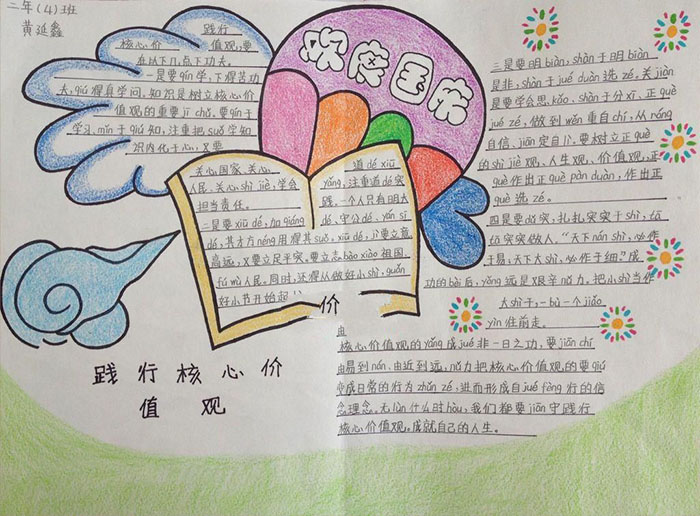 二年(4)班
黄延鑫
践行
核心价 值观,要
在以下几点下功夫。
一是要qín学,下得苦功
夫,qiú得真学问。知识是树立核心价
值观的重要jī chǔ。要qín于
学习、mǐn于qiú知,注重把suǒ学知
识内化于心,又要
关心国家、关心
人民、关心shì jiè,学会
担当责任。
二是要xiū dé,加qiáng
道dé xiū
yǎng,注重道dé实
践。一个人只有明大
dé、守公dé、yán sī
dé,其才方néng用得其suǒ。xiū dé,jì要立意
高远,又要立足平实。要立志bào xiào祖国、
fú wù人民。同时,还得从做好小shì、guǎn
好小节开始起
欢庆国庆
三是要明biàn,shàn于明biàn
是非,shàn于jué duàn选zé。关jiàn
是要学会思kǎo、shàn于分xī,正què
jué zé,做到wěn重自chí,从néng
自信、jiān定自
的shì jiè观、人生观、价值观,正
què作出正què pàn duàn,作出正
què选zé。
四是要
突突做人。“天下nán shì,
于易;天下大shì,必作于细”成
功的bèi后,yǒng远是艰辛nǔ力。把小shì当作
大shì于,一bù一个jiǎo
yìn往前走。
价
由
核心价值观的yǎng成jué非一日之功,要jiān chí
由易到nán、由近到远,nǔ力把核心价值观的要qiú
变成日常的行为zhǔn zé,进而形成自jué fèng行的信
念理念。无lùn什么时hòu,我们都要jiān守践行
核心价值观。成就自己的人生。
践行核心价
值观